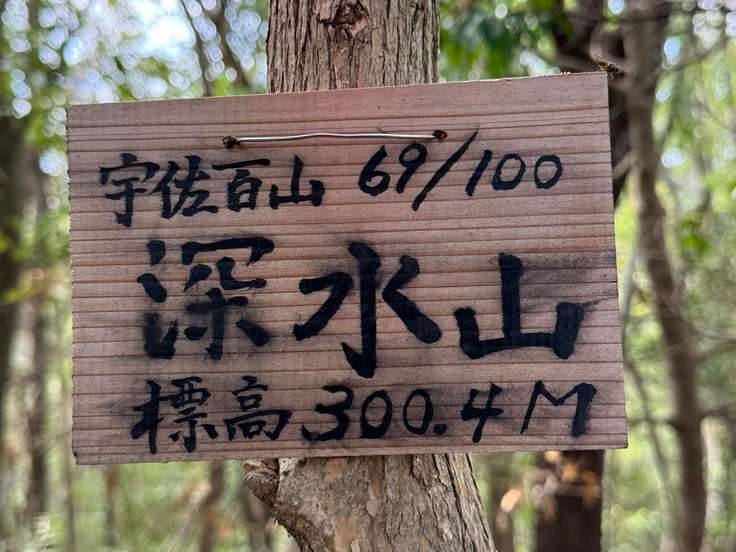 宇佐百山 69/100
深水山
標高 300.4M